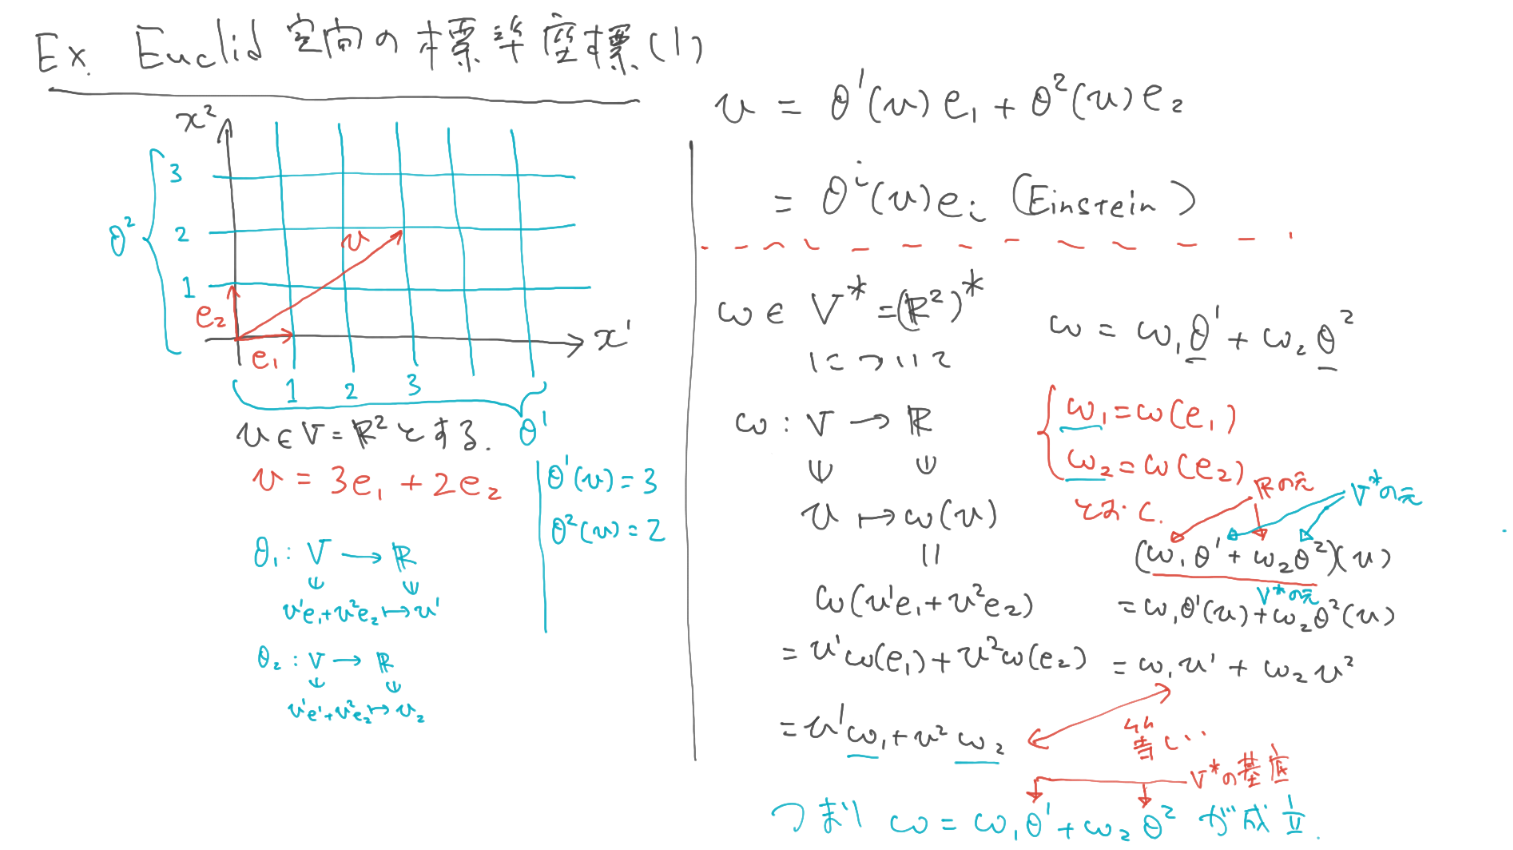 Ex. Euclid 空間の標準座標(1)
x²
3
θ² 2
1
e₂
v
e₁
x¹
1 2 3
θ¹
v ∈ V = ℝ² とする.
v = 3e₁ + 2e₂
θ¹(v) = 3
θ²(v) = 2
θ₁ : V → ℝ
v¹e₁+v²e₂ ↦ v¹
θ₂ : V → ℝ
v¹e¹+v²e₂ ↦ v₂
v = θ¹(v)e₁ + θ²(v)e₂
= θⁱ(v)eᵢ (Einstein)
ω ∈ V* = (ℝ²)*
について
ω : V → ℝ
v ↦ ω(v)
ω(v¹e₁+v²e₂)
= v¹ω(e₁) + v²ω(e₂)
= v¹ω₁ + v²ω₂
ω = ω₁θ¹ + ω₂θ²
ω₁ = ω(e₁)
ω₂ = ω(e₂)
とおく.
ℝの元
V*の元
(ω₁θ¹ + ω₂θ²)(v)
V*の元
= ω₁θ¹(v) + ω₂θ²(v)
= ω₁v¹ + ω₂v²
等しい
V*の基底
つまり ω = ω₁θ¹ + ω₂θ² が成立.